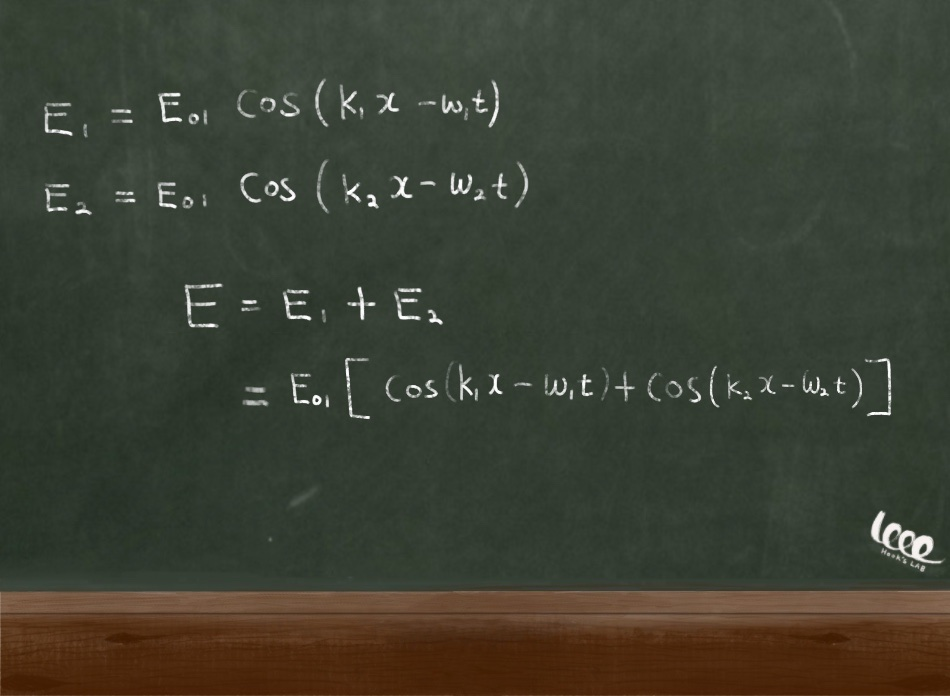 E₁ = E₀₁ Cos (k₁x - ω₁t)
E₂ = E₀₁ Cos (k₂x - ω₂t)
E = E₁ + E₂
= E₀₁ [ Cos(k₁x - ω₁t) + Cos(k₂x - ω₂t) ]
Hook's LAB